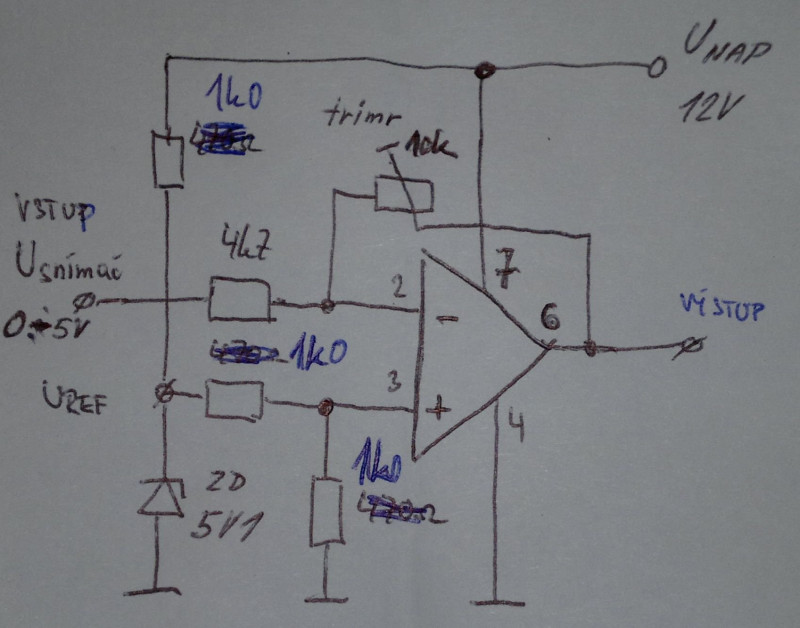 UNAP
12V
1k0
trimr
10k
VSTUP
Usnímač
0÷5V
4k7
2
-
7
6
VÝSTUP
1k0
3
+
UREF
4
1k0
ZD
5V1